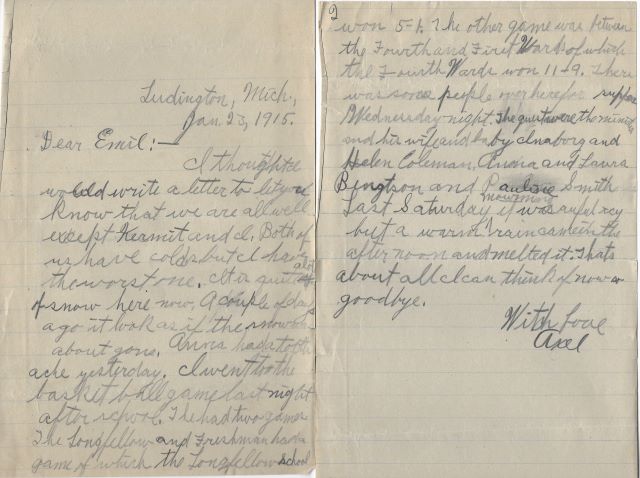 Ludington, Mich.,
Jan. 23, 1915.
Dear Emil:—
I thought I
would write a letter to let you
know that we are all well
except Kermit and I. Both of
us have colds but I have
the worst one. It is quite alot
of snow here now. A couple of days
ago it look as if the snow was
about gone. Anna had a tooth
ache yesterday. I went to the
basket ball game last night
after school. The had two games
The Longfellow and Freshman had a
game of which the Longfellow School
2
won 5-1. The other game was between
the Fourth and First Wards of which
the Fourth Wards won 11-9. There
was some people over here for supper
Wednesday night. The guest were the minis
and his wife and baby Inaborg and
Helen Coleman, Anna and Laura
Bengtson and Pauline Smith
Last Saturday morning it was awful icy
but a warm rain came in the
after noon and melted it. Thats
about all I can think of now so
goodbye.
With Love
Axel